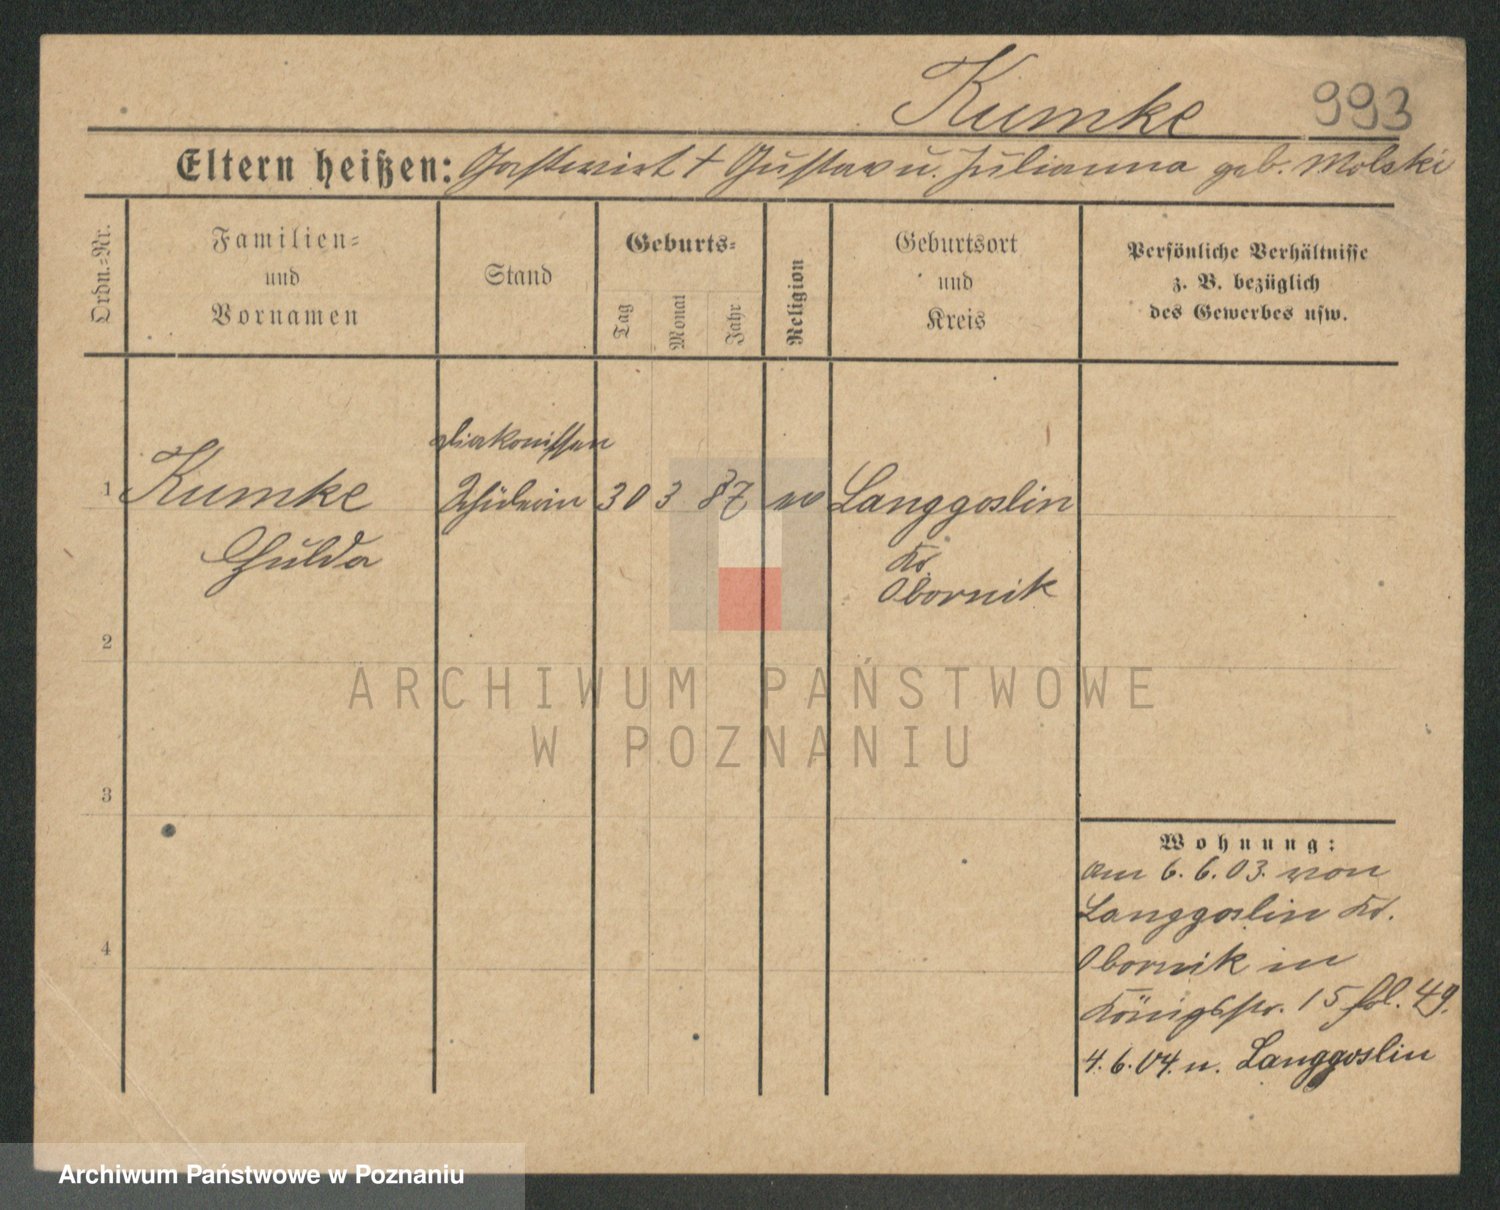 Kumke 993
Eltern heißen: Gastwirt † Gustav u. Julianna geb. Molski
Ordn.=Nr.
Familien=
und
Vornamen
Stand
Geburts=
Tag
Monat
Jahr
Religion
Geburtsort
und
Kreis
Persönliche Verhältnisse
z. B. bezüglich
des Gewerbes usw.
Diakonissen
1 Kumke Schülerin 30 3 87 Langgoslin
Hulda Kr.
Obornik
2
3
4
ARCHIWUM PAŃSTWOWE
W POZNANIU
Wohnung:
am 6.6.03. von
Langgoslin Kr.
Obornik in
Königsstr. 15 fol. 49.
4.6.04. n. Langgoslin
Archiwum Państwowe w Poznaniu